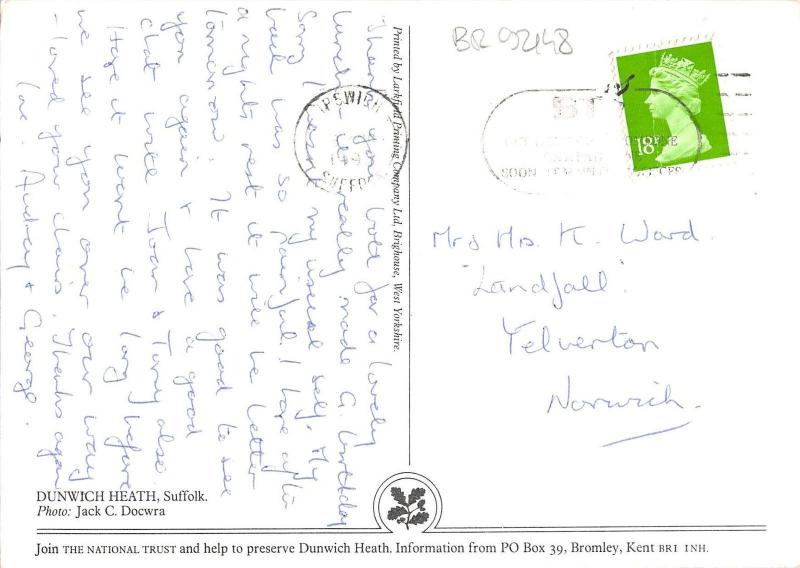 Thank you both for a lovely
lunch – it really made G. birthday
Sorry I wasn't my usual self. My
back was so painful. I hope after
a nights rest it will be better
tomorrow. It was good to see
you again & have a good
chat with Joan & Tony also.
Hope it wont be long before
we see you over our way
– loved your chairs. Thanks again
love. Audrey & George.
Printed by Larkfield Printing Company Ltd, Brighouse, West Yorkshire.
BR 92148
IPSWICH
SUFFOLK
BT
SOON
18P
Mrs Mrs. K. Ward.
'Landfall'
Yelverton
Norwich.
DUNWICH HEATH, Suffolk.
Photo: Jack C. Docwra
Join THE NATIONAL TRUST and help to preserve Dunwich Heath. Information from PO Box 39, Bromley, Kent BR1 1NH.